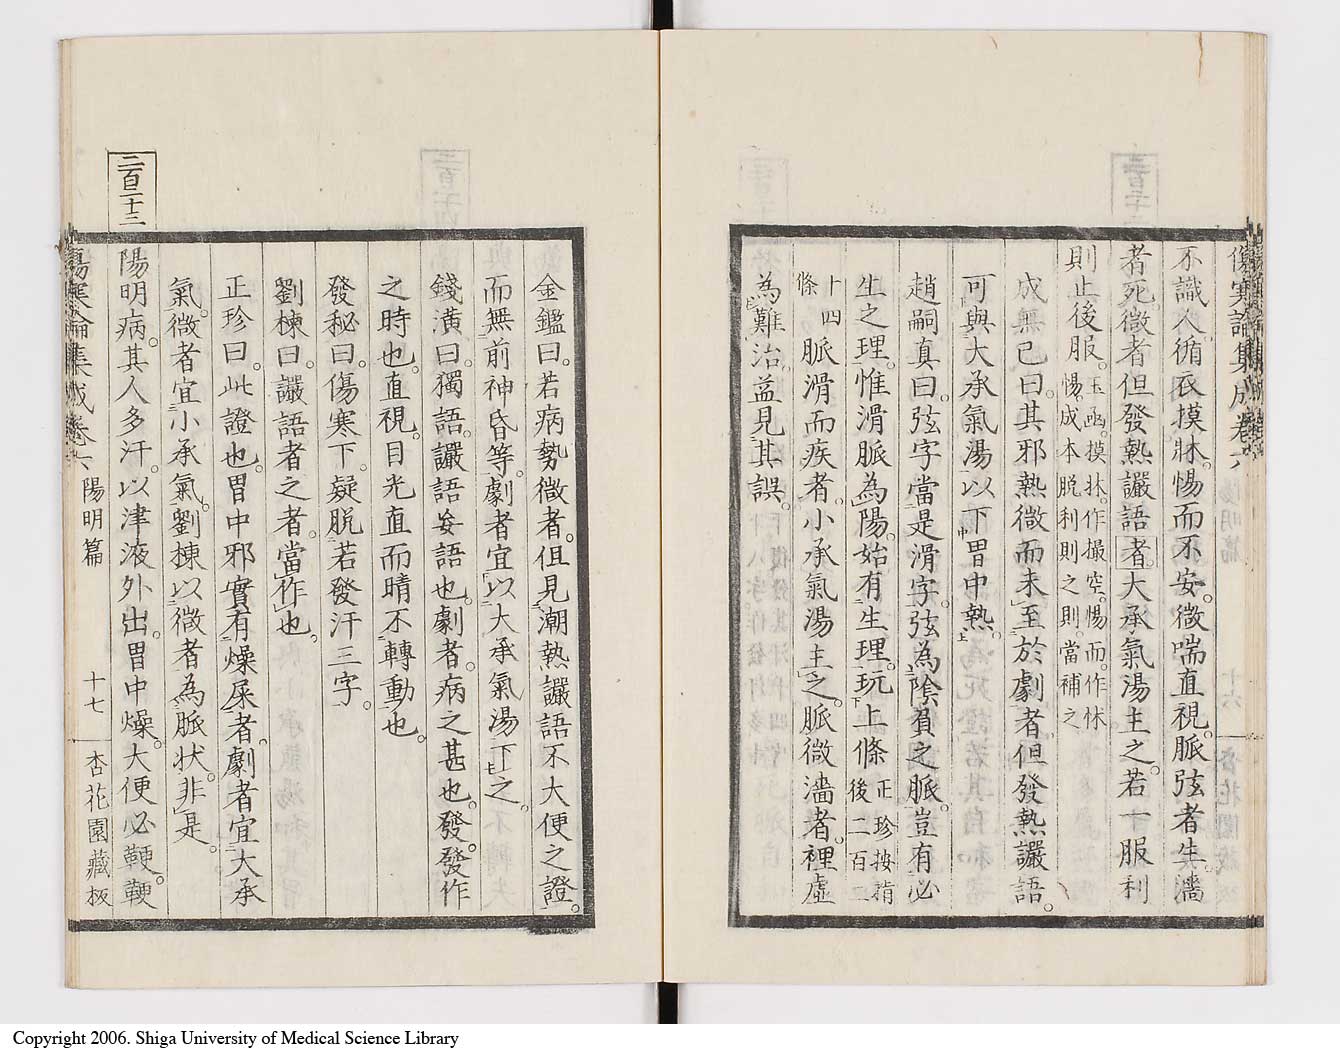 傷寒論集成卷六
不識人。循衣摸牀。惕而不安。微喘直視。脈弦者生。濇
者死。微者但發熱讝語者。大承氣湯主之。若一服利
則止後服。玉函。摸牀。作撮空。惕而。作怵惕。成本脫利則之則。當補之
成無己曰。其邪熱微而未至於劇者。但發熱讝語。
可與大承氣湯以下胃中熱。
趙嗣真曰。弦字當是滑字。弦為陰負之脈。豈有必
生之理。惟滑脈為陽。始有生理。況上條正珍按指後二百二
十四條脈滑而疾者。小承氣湯主之。脈微濇者。裡虛
為難治。益見其誤。
金鑑曰。若病勢微者。但見潮熱讝語不大便之證。
而無前神昏等。劇者宜以大承氣湯下之。
錢潢曰。獨語。讝語妄語也。劇者。病之甚也。發。發作
之時也。直視。目光直而睛不轉動也。
發秘曰。傷寒下。疑脫若發汗三字。
劉棟曰。讝語者之者。當作也。
正珍曰。此證也。胃中邪實有燥屎者。劇者宜大承
氣。微者宜小承氣。劉棟以微者為脈状。非是。
二百二十三
陽明病。其人多汗。以津液外出。胃中燥。大便必鞕。鞕
傷寒論集成卷六 陽明篇 十七 杏花園藏板